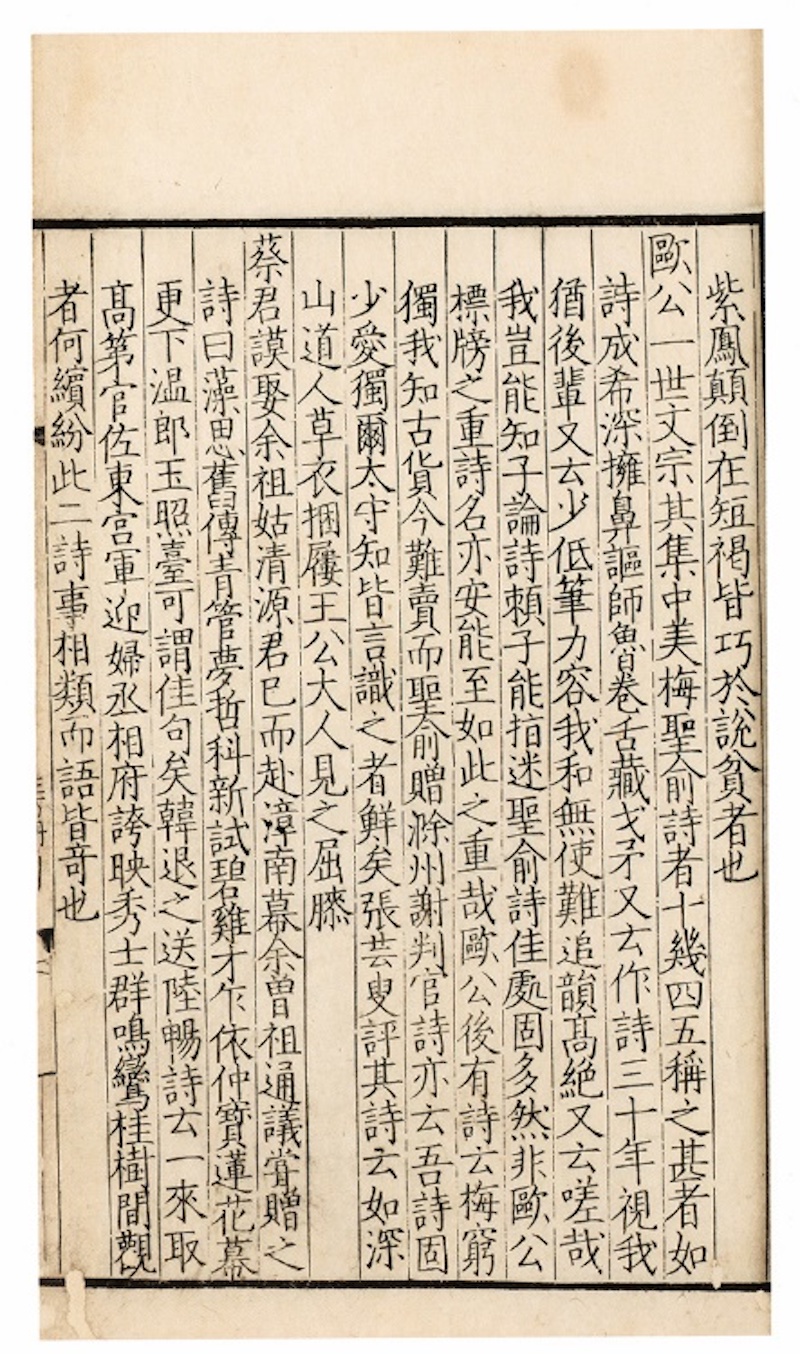 紫鳳顛倒在短褐皆巧於說貧者也
歐公一世文宗其集中美梅聖俞詩者十幾四五稱之甚者如
詩成希深擁鼻謳師魯卷舌藏戈矛又云作詩三十年視我
猶後輩又云少低筆力容我和無使難追韻髙絕又云嗟哉
我豈能知子論詩賴子能指迷聖俞詩佳處固多然非歐公
標牓之重詩名亦安能至如此之重哉歐公後有詩云梅窮
獨我知古貨今難賣而聖俞贈滁州謝判官詩亦云吾詩固
少愛獨爾太守知皆言識之者鮮矣張芸叟評其詩云如深
山道人草衣捆屨王公大人見之屈膝
蔡君謨娶余祖姑清源君已而赴漳南幕余曾祖通議甞贈之
詩曰藻思舊傳青管夢哲科新試碧雞才乍依仲寶蓮花幕
更下温郎玉照臺可謂佳句矣韓退之送陸暢詩云一來取
髙第官佐東宫軍迎婦丞相府誇映秀士群鳴鸞桂樹間觀
者何繽紛此二詩事相類而語皆竒也